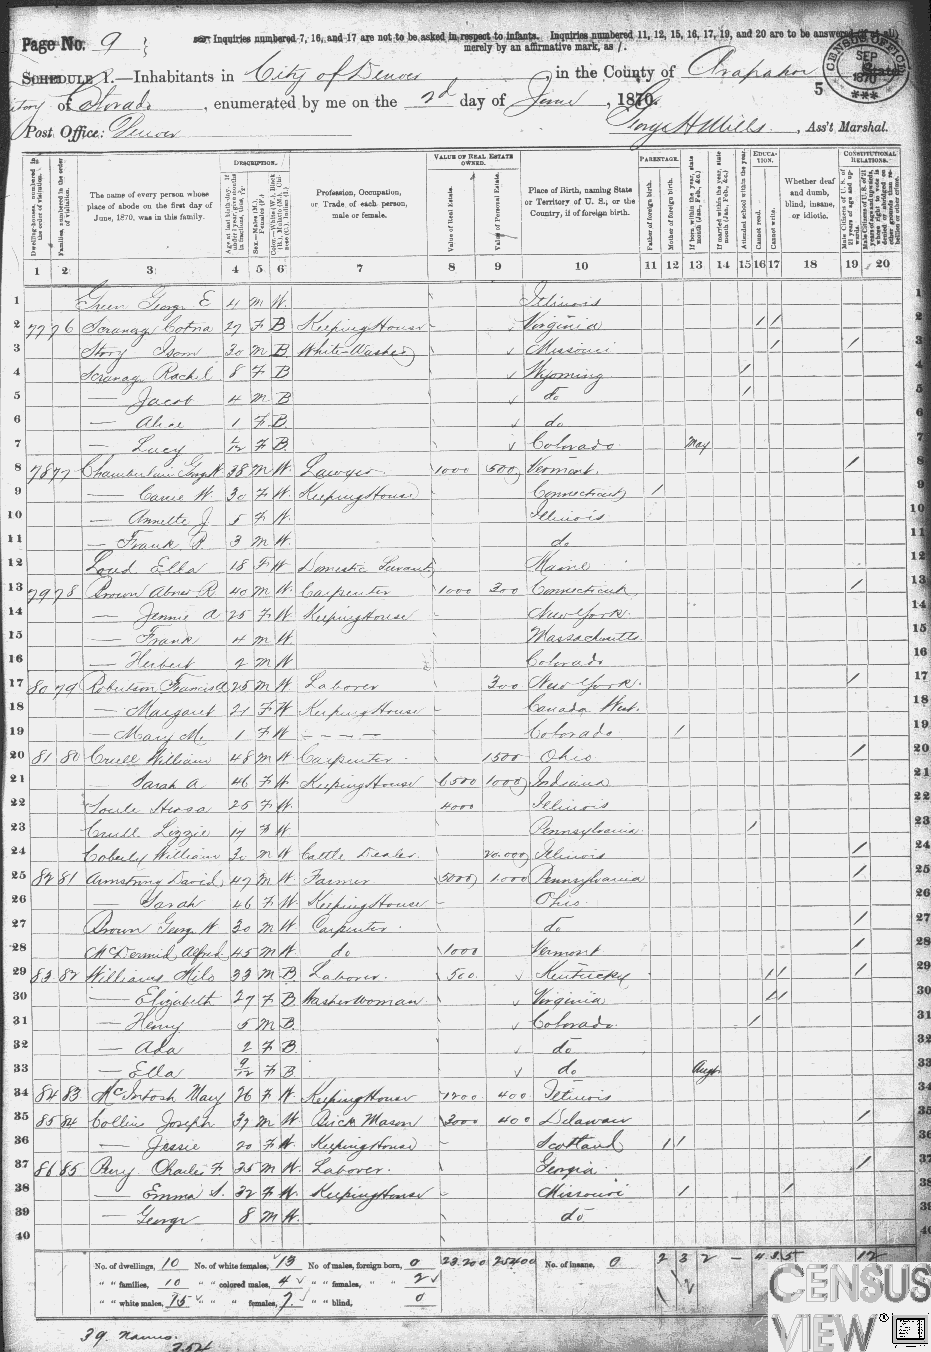 Page No. 9
Inquiries numbered 7, 16, and 17 are not to be asked in respect to infants. Inquiries numbered 11, 12, 15, 16, 17, 19, and 20 are to be answered (if at all)
merely by an affirmative mark, as /.
SCHEDULE 1.—Inhabitants in City of Denver, in the County of Arapahoe, State
itory of Colorado, enumerated by me on the 2d day of June, 1870.
CENSUS OFFICE SEP 1870
5
Post Office: Denver George H Mills, Ass't Marshal.
Dwelling-houses, numbered in the order of visitation.
Families numbered in the order of visitation.
The name of every person whose place of abode on the first day of June, 1870, was in this family.
DESCRIPTION.
Profession, Occupation, or Trade of each person, male or female.
VALUE OF REAL ESTATE OWNED.
Value of Real Estate.
Value of Personal Estate.
Place of Birth, naming State or Territory of U. S.; or the Country, if of foreign birth.
PARENTAGE.
Father of foreign birth.
Mother of foreign birth.
If born within the year, state month (Jan., Feb., &c.)
If married within the year, state month (Jan., Feb., &c.)
Attended school within the year.
EDUCATION.
Cannot read.
Cannot write.
Whether deaf and dumb, blind, insane, or idiotic.
CONSTITUTIONAL RELATIONS.
1 2 3 4 5 6 7 8 9 10 11 12 13 14 15 16 17 18 19 20
1 Green George E 4 M W. Illinois 1
2 77 76 27 F B Keeping House Virginia / / 2
3 Story Isom 30 M B White-Washer Missouri / / 3
4 Rachel 8 F B Wyoming / 4
5 — Jacob 4 M B do / 5
6 — Alice 1 F B. do 6
7 — Lucy 1/12 F B. Colorado May 7
8 78 77 Chamberlain Geog W 38 M W. Lawyer 1000 500 Vermont. / 8
9 — Carrie W. 30 F W. Keeping House Connecticut / 9
10 — Annette J 5 F W. Illinois 10
11 — Frank B. 3 M W. do 11
12 Loud Ella 18 F W Domestic Servant Maine 12
13 79 78 Brown Abner R 40 M W. Carpenter 1000 300 Connecticut / 13
14 — Jennie A 25 F W. Keeping House New York. 14
15 — Frank 4 M W Massachusetts 15
16 — Herbert 2 M W Colorado 16
17 80 79 Robertson Francis A 25 M W. Laborer 300 New York. / 17
18 — Margaret 21 F W Keeping House Canada West. 18
19 — Mary M. 1 F W — — — — Colorado / 19
20 81 80 Crull William 48 M W Carpenter 1500 Ohio / 20
21 — Sarah A 46 F W. Keeping House 6500 1000 Indiana 21
22 25 F W. 4000 Illinois 22
23 Crull Lizzie 17 F W. Pennsylvania / 23
24 Coberly William 30 M W Cattle Dealer. 20.000 Illinois / 24
25 82 81 Armstrong David 47 M W. Farmer 5000 1000 Pennsylvania / 25
26 — Sarah 46 F W. Keeping House Ohio. 26
27 Brown Georg W 30 M W. Carpenter do / 27
28 McDermid Alfred 45 M W. do 1000 Vermont / 28
29 83 82 Williams Milo 33 M B. Laborer. 500. Kentucky / / / 29
30 — Elizabeth 27 F B. Washerwoman Virginia / / 30
31 — Henry 5 M B. Colorado. / 31
32 — Ada 2 F B. do 32
33 — Ella 9/12 F B. do Augt 33
34 84 83 McIntosh Mary 26 F W. Keeping House 1200 400 Illinois 34
35 85 84 Collins Joseph 37 M W. Brick Mason 3000 400 Delaware / 35
36 — Jessie 20 F W. Keeping House Scotland / / 36
37 86 85 Perry Charles F 35 M W. Laborer. Georgia / 37
38 — Emma S. 32 F W. Keeping House Missouri / / 38
39 — George 8 M W. do 39
40 40
No. of dwellings, 10 No. of white females, 13 No. of males, foreign born, 0 23.200 25400 No. of insane, 0 2 3 2 — 4 3 5 12
" " families, 10 " " colored males, 4 " " females, " 2
" " white males, 15 " " " females, 7. " " blind, 0
39. Names.
CENSUS
VIEW®